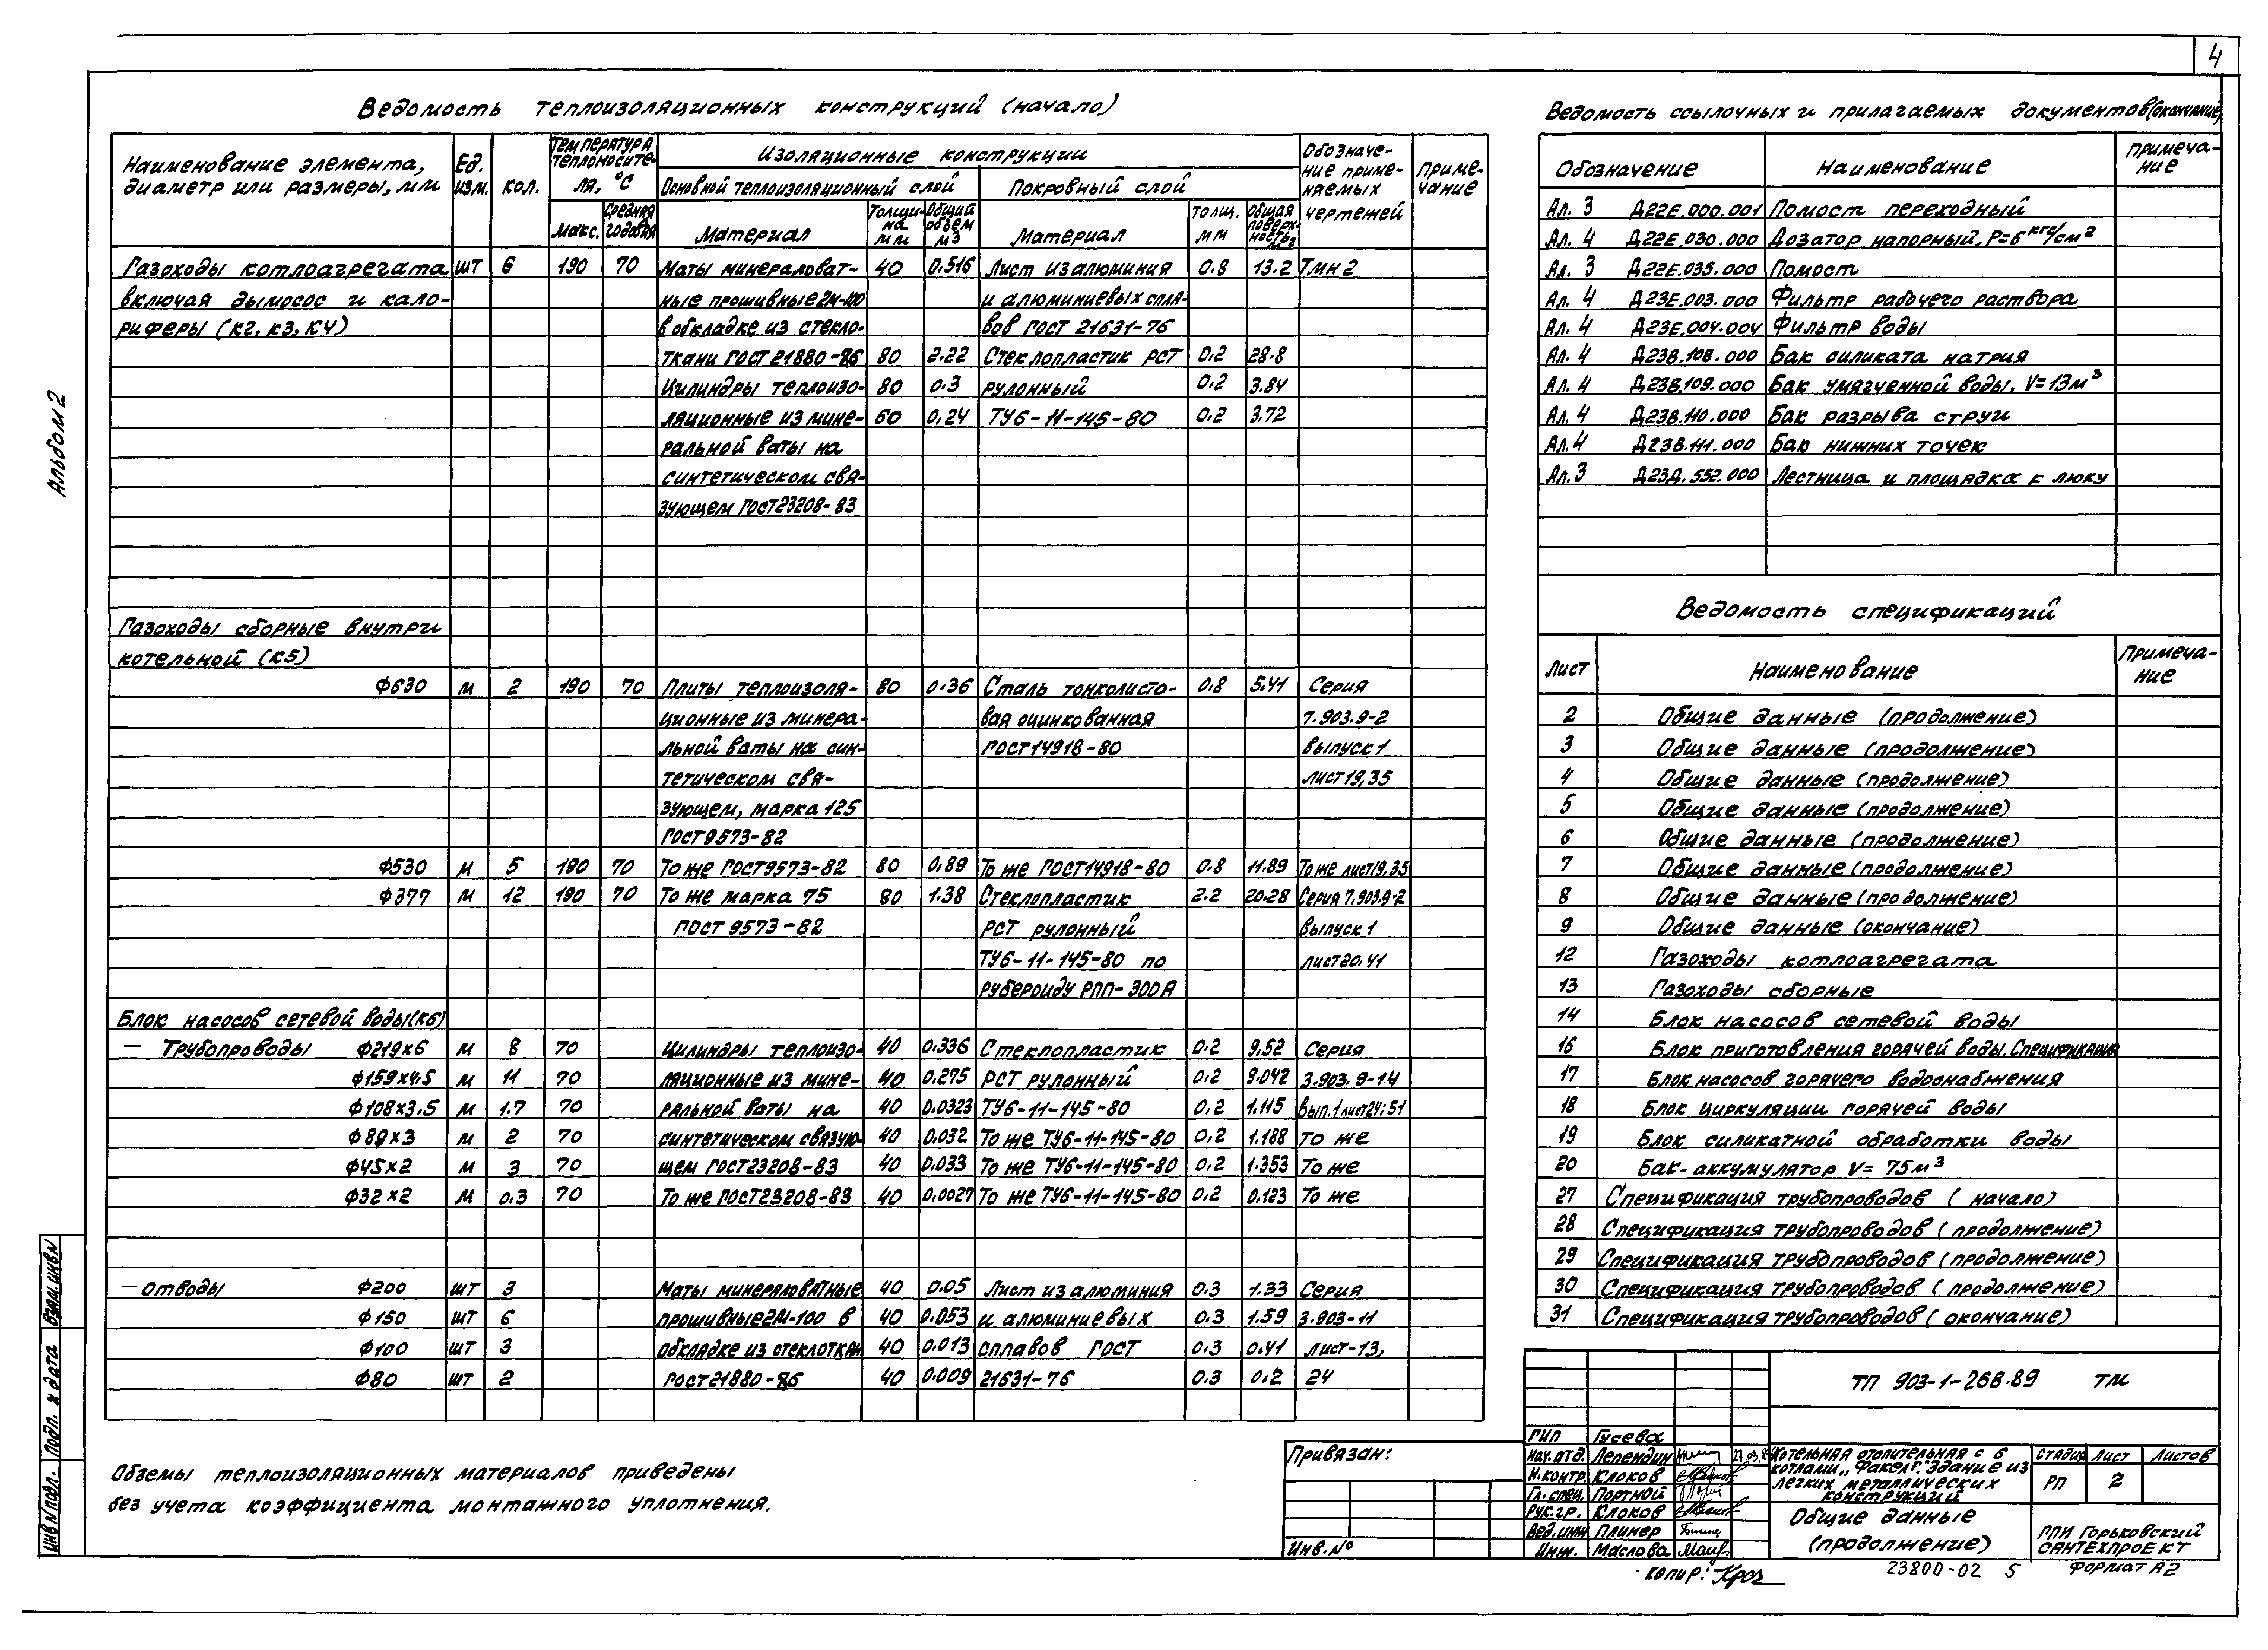 4
Альбом 2
Ведомость теплоизоляционных конструкций (начало)
Наименование элемента, диаметр или размеры, мм | Ед. изм. | кол. | Температура теплоносителя, °С | Изоляционные конструкции | Обозначение применяемых чертежей | Примечание
Основной теплоизоляционный слой | Покровный слой
Макс. | Средняя годовая | Материал | Толщина мм | Общий объем м3 | Материал | Толщ. мм | Общая поверхность, м2
Газоходы котлоагрегата | шт | 6 | 190 | 70 | Маты минераловат- | 40 | 0.516 | Лист из алюминия | 0.8 | 13.2 | ТМН 2
включая дымосос и кало- | ные прошивные 2М-100 | и алюминиевых спла-
риферы (К2, К3, К4) | в обкладке из стекло- | вов ГОСТ 21631-76
ткани ГОСТ 21880-86 | 80 | 2.22 | Стеклопластик РСТ | 0.2 | 28.8
Цилиндры теплоизо- | 80 | 0.3 | рулонный | 0.2 | 3.84
ляционные из мине- | 60 | 0.24 | ТУ6-11-145-80 | 0.2 | 3.72
ральной ваты на
синтетическом свя-
зующем ГОСТ 23208-83
Газоходы сборные внутри
котельной (К5)
Ф630 | м | 2 | 190 | 70 | Плиты теплоизоля- | 80 | 0.36 | Сталь тонколисто- | 0.8 | 5.41 | Серия
ционные из минера- | вая оцинкованная | 7.903.9-2
льной ваты на син- | ГОСТ 14918-80 | выпуск 1
тетическом свя- | лист 19,35
зующем, марка 125
ГОСТ 9573-82
Ф530 | м | 5 | 190 | 70 | То же ГОСТ 9573-82 | 80 | 0.89 | То же ГОСТ 14918-80 | 0.8 | 11.89 | То же лист 19,35
Ф377 | м | 12 | 190 | 70 | То же марка 75 | 80 | 1.38 | Стеклопластик | 2.2 | 20.28 | Серия 7.903.9-2
ГОСТ 9573-82 | РСТ рулонный | выпуск 1
ТУ6-11-145-80 по | лист 20,41
рубероиду РПП-300А
Блок насосов сетевой воды (К6)
— Трубопроводы Ф219х6 | м | 8 | 70 | Цилиндры теплоизо- | 40 | 0.336 | Стеклопластик | 0.2 | 9.52 | Серия
Ф159х4.5 | м | 11 | 70 | ляционные из мине- | 40 | 0.275 | РСТ рулонный | 0.2 | 9.042 | 3.903.9-14
Ф108х3.5 | м | 1.7 | 70 | ральной ваты на | 40 | 0.0323 | ТУ6-11-145-80 | 0.2 | 1.115 | вып.1 лист 24;51
Ф89х3 | м | 2 | 70 | синтетическом связую- | 40 | 0.032 | То же ТУ6-11-145-80 | 0.2 | 1.188 | То же
Ф45х2 | м | 3 | 70 | щем ГОСТ 23208-83 | 40 | 0.033 | То же ТУ6-11-145-80 | 0.2 | 1.353 | То же
Ф32х2 | м | 0.3 | 70 | То же ГОСТ 23208-83 | 40 | 0.0027 | То же ТУ6-11-145-80 | 0.2 | 0.123 | То же
— отводы Ф200 | шт | 3 | Маты минераловатные | 40 | 0.05 | Лист из алюминия | 0.3 | 1.33 | Серия
Ф150 | шт | 6 | прошивные 2М-100 в | 40 | 0.053 | и алюминиевых | 0.3 | 1.59 | 3.903-11
Ф100 | шт | 3 | обкладке из стеклоткан | 40 | 0.013 | сплавов ГОСТ | 0.3 | 0.41 | лист-13,
Ф80 | шт | 2 | ГОСТ 21880-86 | 40 | 0.009 | 21631-76 | 0.3 | 0.2 | 24
Объемы теплоизоляционных материалов приведены
без учета коэффициента монтажного уплотнения.
Ведомость ссылочных и прилагаемых документов (окончание)
Обозначение | Наименование | Примечание
Ал. 3 Д22Е.000.001 | Помост переходный
Ал. 4 Д22Е.030.000 | Дозатор напорный, Р=6 кгс/см²
Ал. 3 Д22Е.035.000 | Помост
Ал. 4 Д23Е.003.000 | Фильтр рабочего раствора
Ал. 4 Д23Е.004.004 | Фильтр воды
Ал. 4 Д23В.108.000 | Бак силиката натрия
Ал. 4 Д23В.109.000 | Бак умягченной воды, V=13м³
Ал. 4 Д23В.110.000 | Бак разрыва струи
Ал. 4 Д23В.111.000 | Бак нижних точек
Ал. 3 Д23Д.552.000 | Лестница и площадка к люку
Ведомость спецификаций
Лист | Наименование | Примечание
2 | Общие данные (продолжение)
3 | Общие данные (продолжение)
4 | Общие данные (продолжение)
5 | Общие данные (продолжение)
6 | Общие данные (продолжение)
7 | Общие данные (продолжение)
8 | Общие данные (продолжение)
9 | Общие данные (окончание)
12 | Газоходы котлоагрегата
13 | Газоходы сборные
14 | Блок насосов сетевой воды
16 | Блок приготовления горячей воды. Спецификация
17 | Блок насосов горячего водоснабжения
18 | Блок циркуляции горячей воды
19 | Блок силикатной обработки воды
20 | Бак-аккумулятор V= 75м³
27 | Спецификация трубопроводов (начало)
28 | Спецификация трубопроводов (продолжение)
29 | Спецификация трубопроводов (продолжение)
30 | Спецификация трубопроводов (продолжение)
31 | Спецификация трубопроводов (окончание)
ТП 903-1-268.89 ТМ
Привязан:
Инв.№
ГИП Гусева
Нач. отд. Лепендин
Н.контр. Клоков
Гл. спец. Портной
Рук.гр. Клоков
Вед.инж Плинер
Инж. Маслова
Котельная отопительная с 6
котлами „Факел-Г". Здание из
легких металлических
конструкций
Стадия | Лист | Листов
РП | 2
Общие данные
(продолжение)
ГПИ Горьковский
САНТЕХПРОЕКТ
копир:
23800-02 5
Формат А2
Инв.№ подл. | Подп. и дата | Взам.инв.№